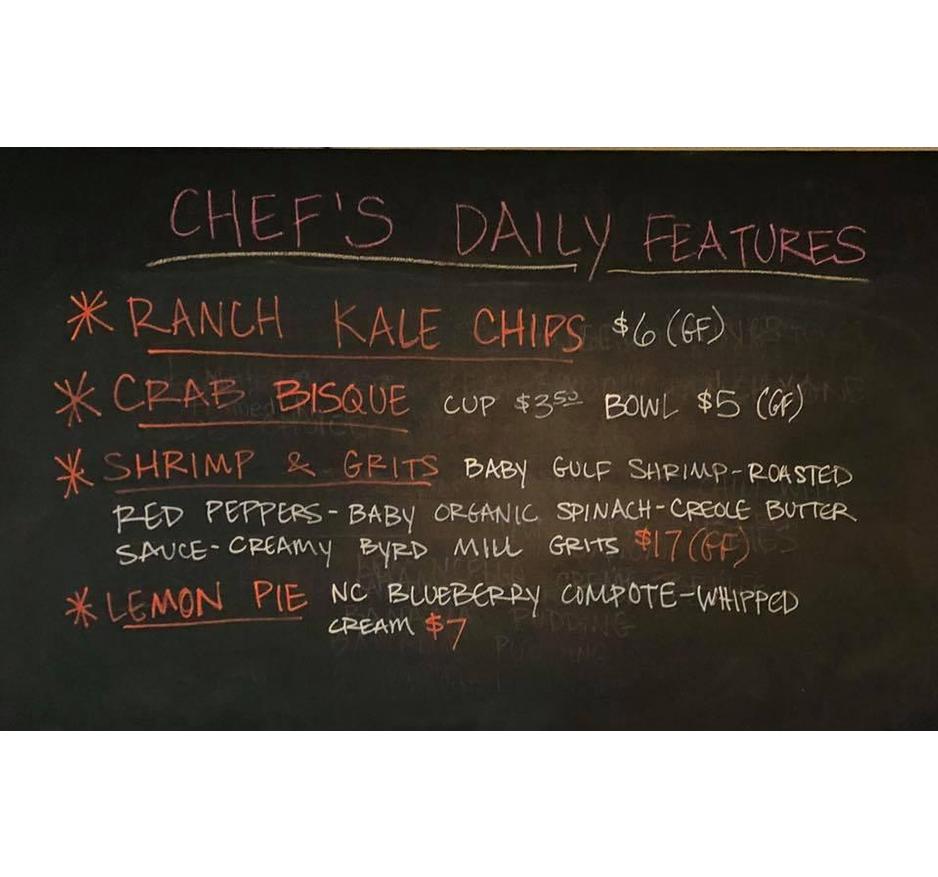 CHEF'S DAILY FEATURES
* RANCH KALE CHIPS $6 (GF)
* CRAB BISQUE CUP $3.50 BOWL $5 (GF)
* SHRIMP & GRITS BABY GULF SHRIMP-ROASTED
RED PEPPERS-BABY ORGANIC SPINACH-CREOLE BUTTER
SAUCE-CREAMY BYRD MILL GRITS $17 (GF)
* LEMON PIE NC BLUEBERRY COMPOTE-WHIPPED
CREAM $7